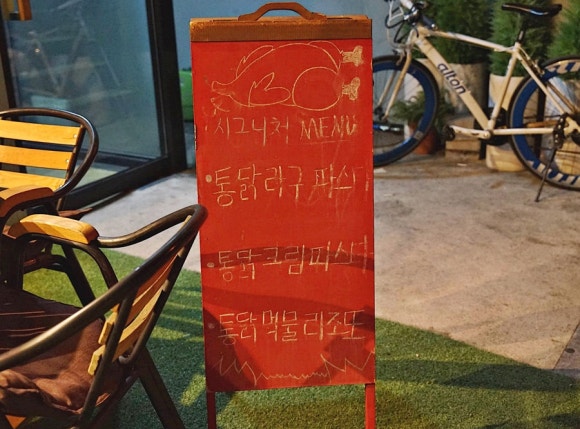 시그니처 MENU
통닭라구 파스타
통닭크림파스타
통닭먹물리조또
alton